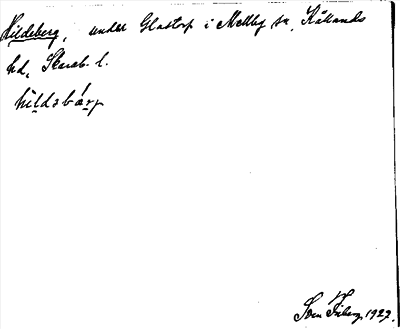 Hildeberg, under Glastorp i Mellby sn, Kållands
hd, Skarab. l.
hildsbärj
Sven Friberg 1927.